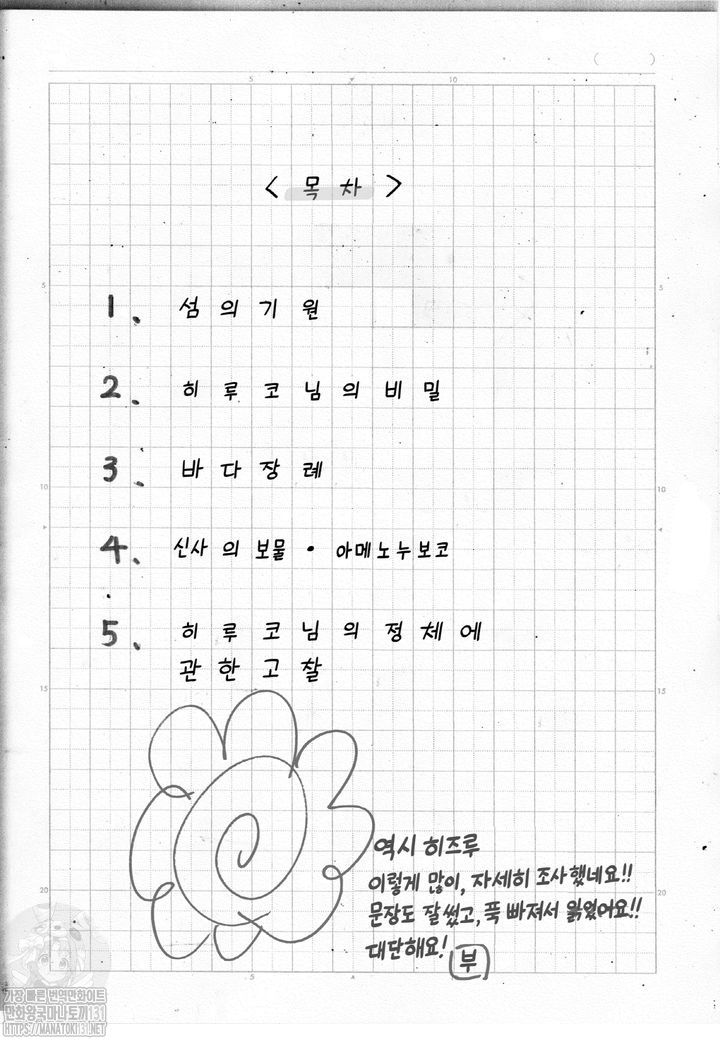 ( )
5 10
< 목차 >
5 5
1. 섬의 기원
2. 히루코님의 비밀
3. 바다장례
10 10
4. 신사의 보물・아메노누보코
5. 히루코님의 정체에
관한 고찰
15 15
역시 히즈루
이렇게 많이, 자세히 조사했네요!!
20 20
문장도 잘 썼고, 푹 빠져서 읽었어요!!
대단해요! 부
5 10
가장 빠른 번역만화이트
만화왕국마나토끼131
HTTPS://MANATOKI131.COM